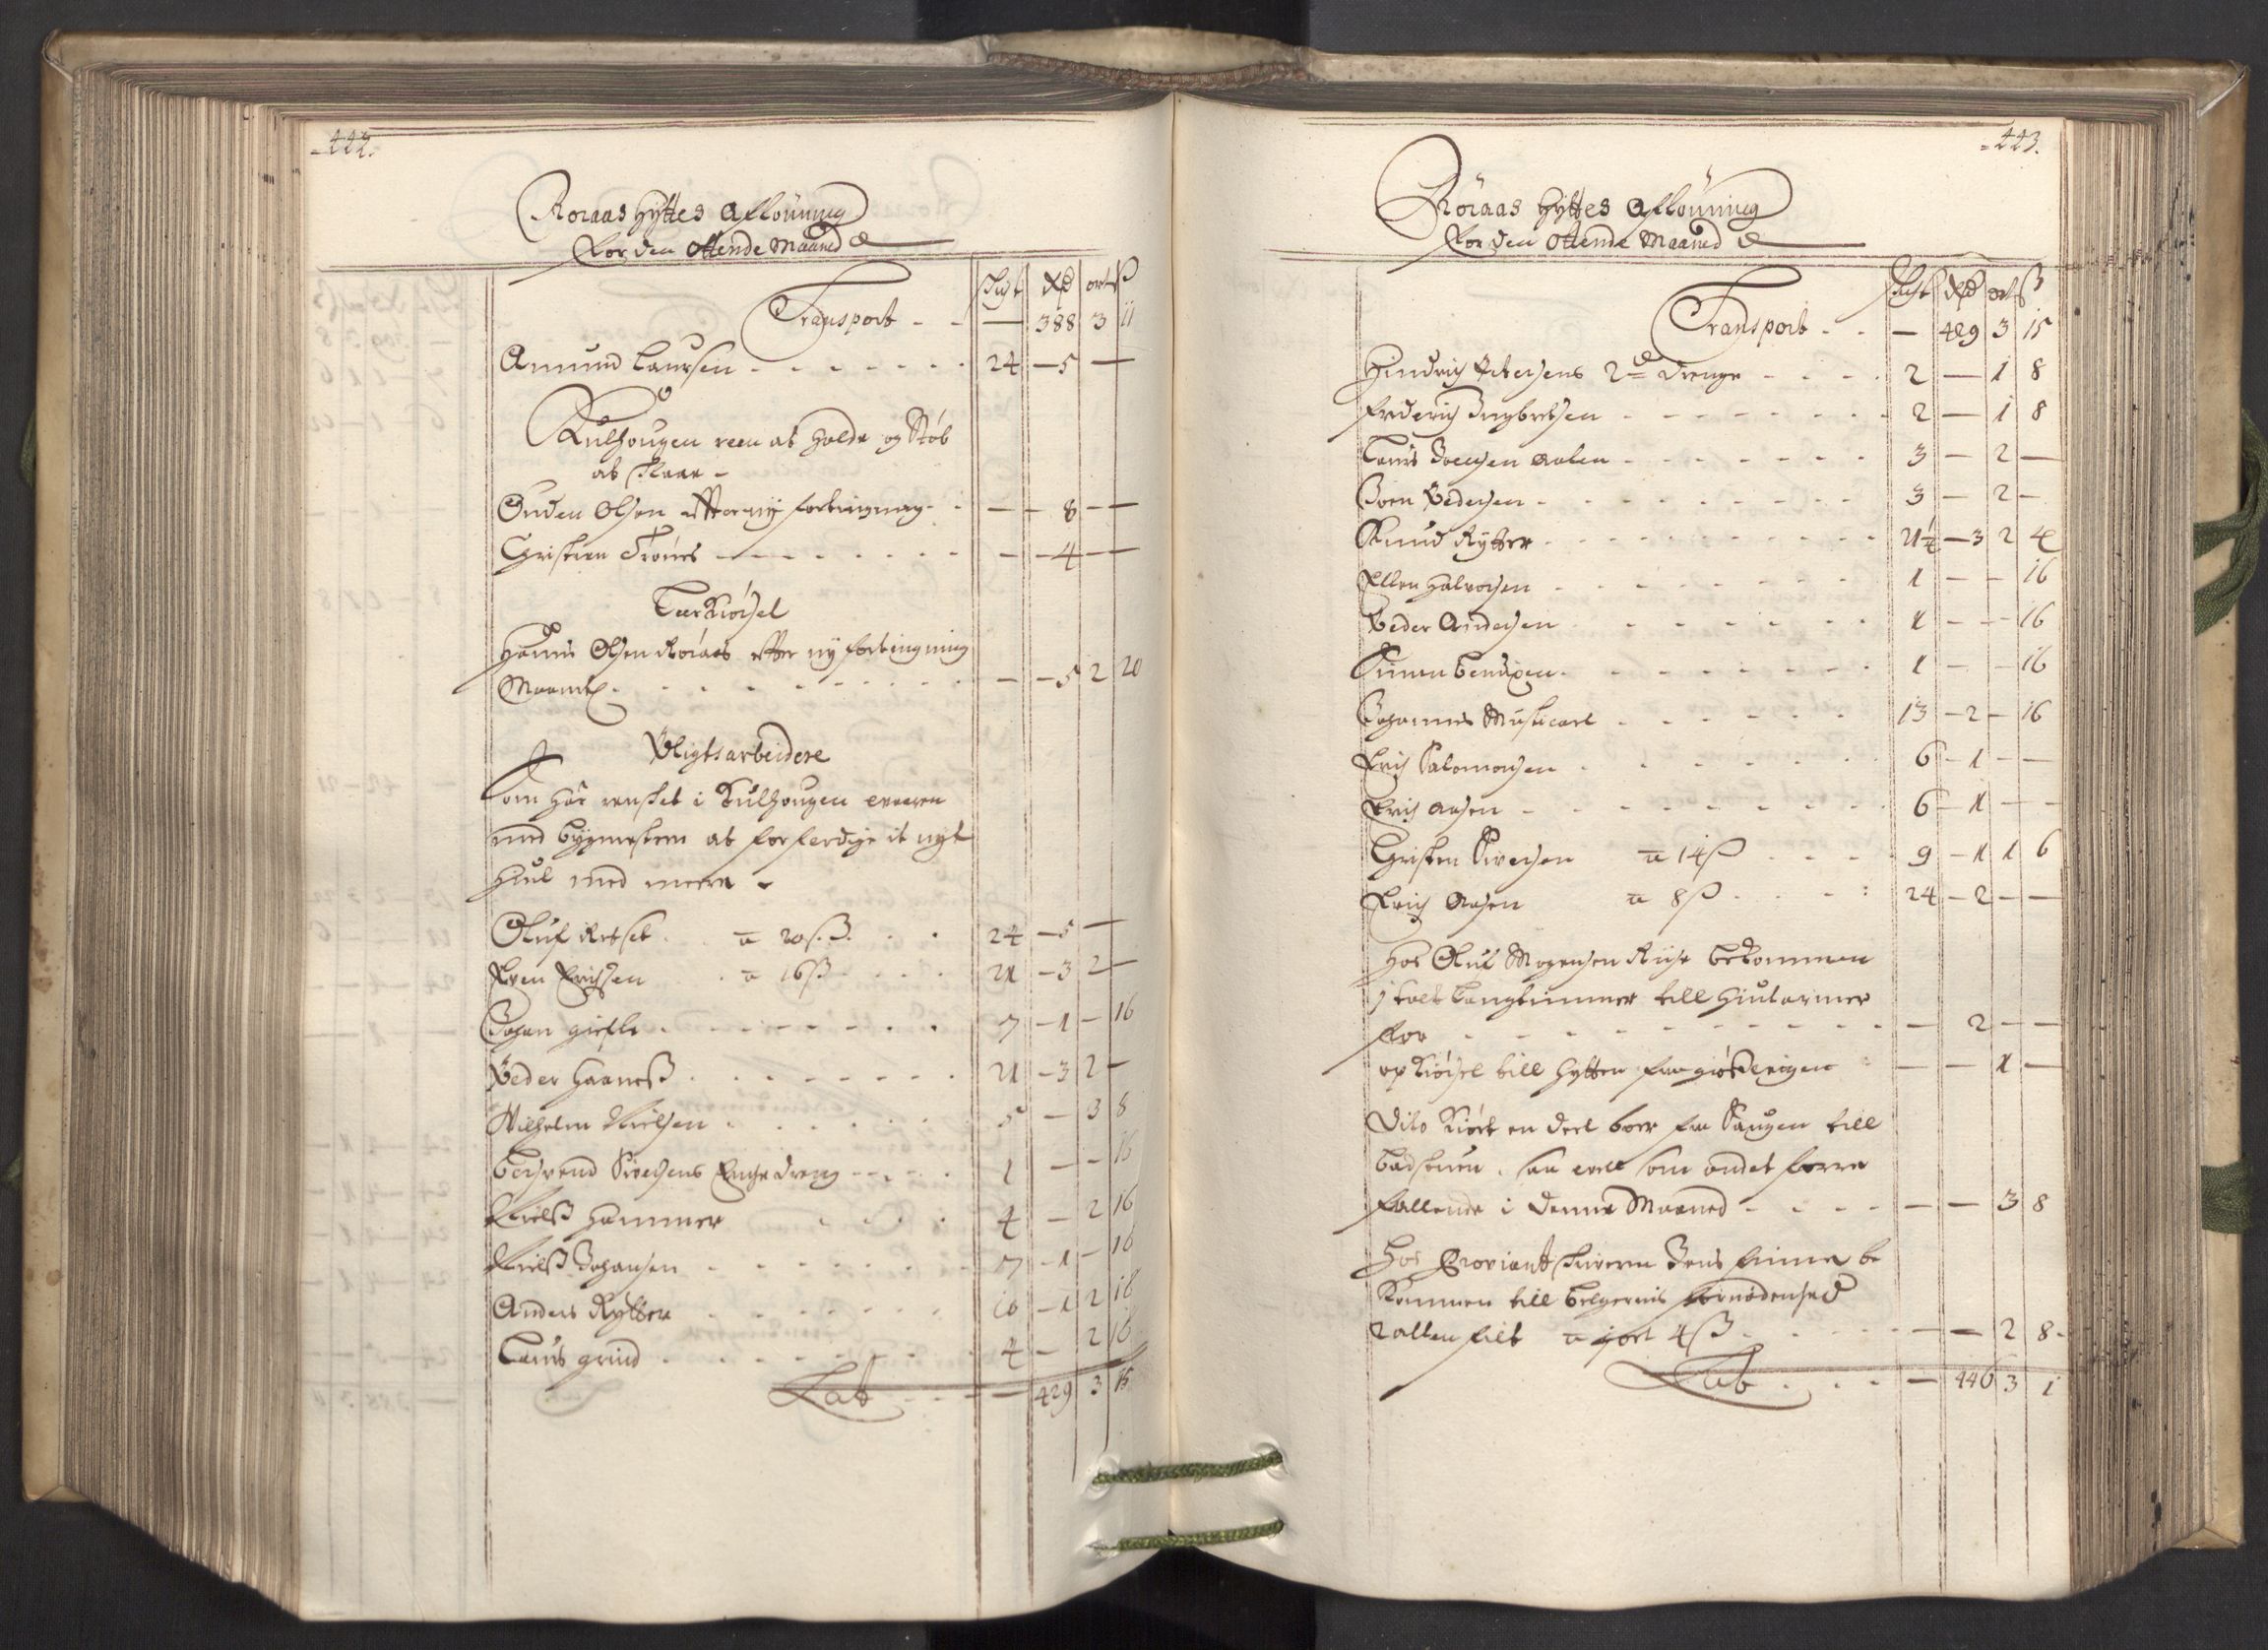 442.
Røraas Hÿttes Aflønning
For den Ottende Maaned
Schgt Rd ort ß
Transport - - — 388 3 11
Amund Laursen - - - 24 — 5 —
Kulhougen reen at holde og Støb
at slaae -
Ouden Olsen effter nÿ fortingning - - — — 8 — —
Christen Trønes - - - — — 4 — —
Leerkiørsel
Hanns Olsen Røraas effter nÿ fortingning
Maanetl - - - — — 5 2 20
Pligtsarbeidere
Som har rensket i Kulhougen
med bÿgmesteren at forferdige it nÿt
Hiul med meere -
Oluf Retset a 20 ß - - 24 — 5 —
Even Erichsen a 16 ß - - 21 — 3 2 —
Johan giefle - - - 7 — 1 — 16
Peder Haaneß - - - 21 — 3 2 —
Wilhelm Nielsen - - - 5 — 3 8
Siversens dreng - - - 1 — — 16
Nielß Hammer - - - 4 — 2 16
Nielß Johansen - - - 7 — 1 — 16
Anders Rytter - - - 10 — 1 2 16
Laurs grind - - - 4 — 2 16
Lat - - — 429 3 15
443.
Røraas Hÿttes Aflønning
For den Ottende Maaned
Schgt Rd ort ß
Transport - - — 429 3 15
Hindrich Petersens 2de drenge - - - 2 — 1 8
Friderich Ingbretsen - - - 2 — 1 8
Laurs Joensen Aalen - - - 3 — 2 —
Joen Pedersen - - - 3 — 2 —
Knud Rÿtter - - - 21¼ — 3 2 4
Ellen Halvorsen - - - 1 — — 16
Peder Andersen - - - 1 — — 16
Simen Bendixen - - - 1 — — 16
Johannes Musicant - - - 13 — 2 — 16
Erich Salomonsen - - - 6 — 1 — —
Erich Aasen - - - 6 — 1 — —
Christen Siversen a 14 ß - - - 9 — 1 1 6
Erich Aasen a 8 ß - - - 24 — 2 — —
Hos Oluf Mogensen Riise bekommen
1 tolt Langtimmer till Hiularmer
for - - - — 2 — —
opkiørsel till Hÿtten fra - — — 1 —
Dito Kiørt en deel boer fra Saugen till
badstuen, saa vell som andet forre
fallende i denne Maaned - - - — — 3 8
Hos Proviantskriveren Jens Finne be
kommen till belgernis fornødenhed
2 allen filt a 1 ort 4 ß - - - — — 2 8
Lat - - - — 440 3 1